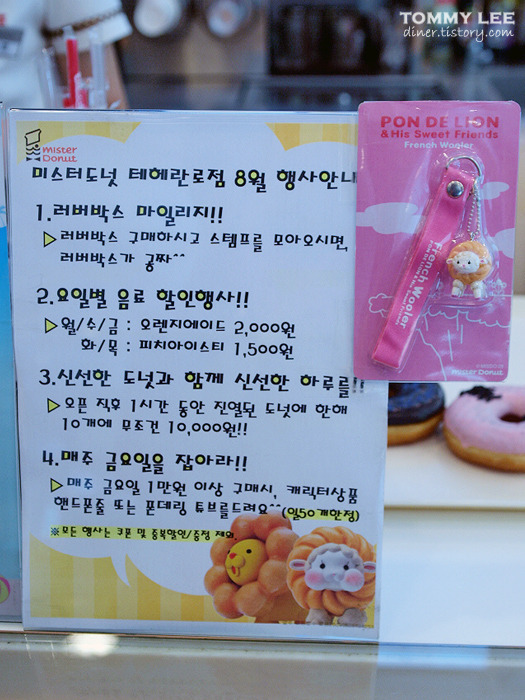 TOMMY LEE
diner.tistory.com
mister Donut
미스터도넛 테헤란로점 8월 행사안내
1.러버박스 마일리지!!
러버박스 구매하시고 스템프를 모아오시면,
러버박스가 공짜^^
2.요일별 음료 할인행사!!
월/수/금 : 오렌지에이드 2,000원
화/목 : 피치아이스티 1,500원
3.신선한 도넛과 함께 신선한 하루를!!
오픈 직후 1시간 동안 진열된 도넛에 한해
10개에 무조건 10,000원!!
4.매주 금요일을 잡아라!!
매주 금요일 1만원 이상 구매시, 캐릭터상품
핸드폰줄 또는 폰데링 튜브를드려요^^(일50개한정)
※모든 행사는 쿠폰 및 중복할인/증정 제외.
PON DE LION
& His Sweet Friends
French Wooler
French Wooler
mister Donut